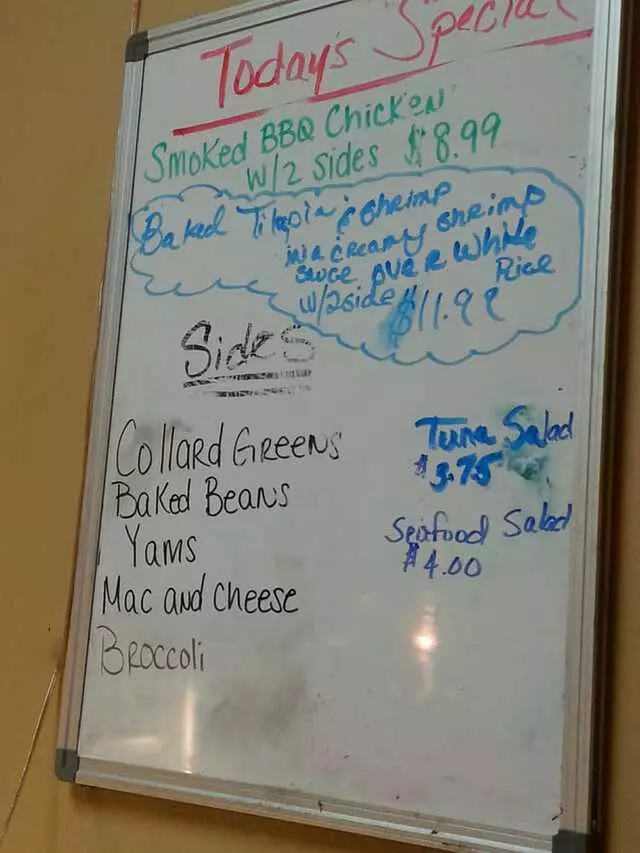 Today's Special
Smoked BBQ Chicken
w/2 sides $8.99
Baked Tilapia & Shrimp
in a creamy shrimp
sauce over white
Rice
w/2 sides
$11.99
Sides
Collard Greens
Baked Beans
Yams
Mac and Cheese
Broccoli
Tuna Salad
$3.75
Seafood Salad
$4.00